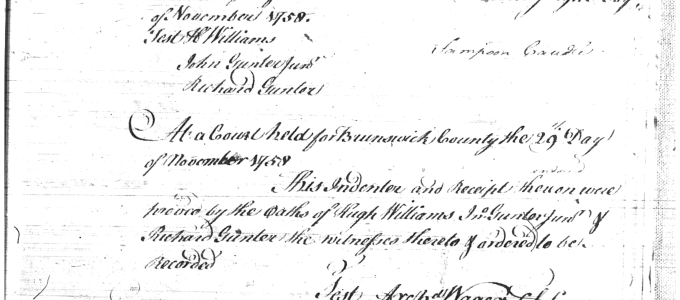 of November 1758.
Test H Williams
Sampson
John Gunter Junr
Richard Gunter
At a Court held for Brunswick County the 29th Day
of November 1758
This Indenter and Receipt thereon were
proved by the Oaths of Hugh Williams Jno Gunter Junr &
Richard Gunter the witnesses thereto & ordered to be
Recorded
Test